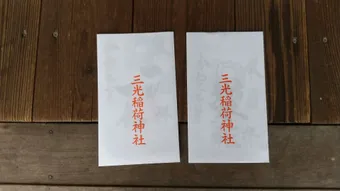 三光稲荷神社
三光稲荷神社